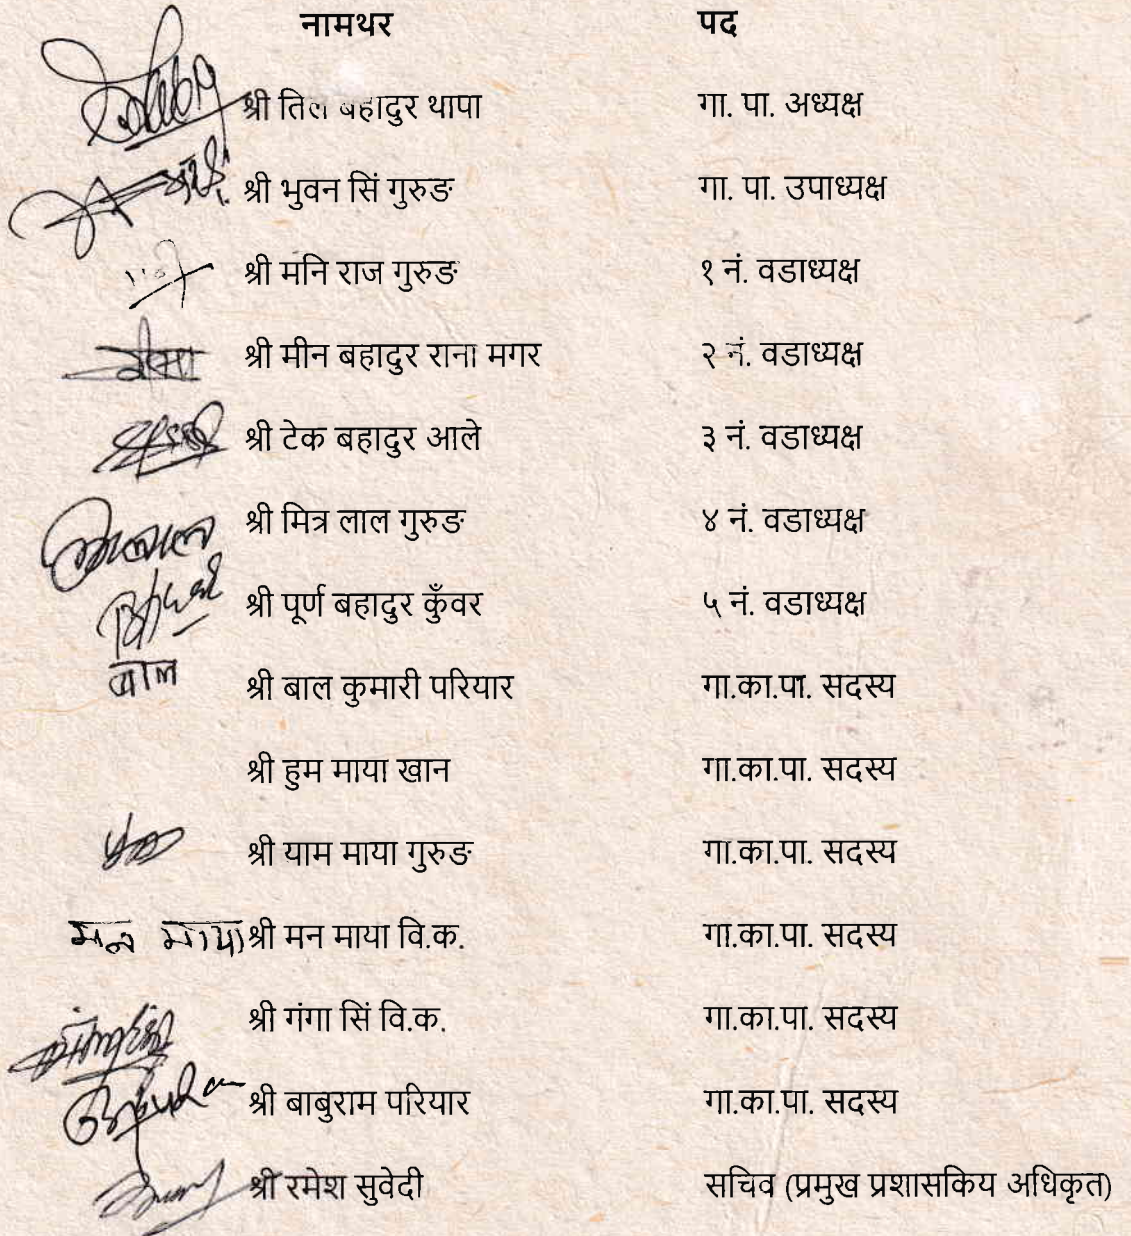 नामथर पद
श्री तिल बहादुर थापा गा. पा. अध्यक्ष
श्री भुवन सिं गुरुङ गा. पा. उपाध्यक्ष
श्री मनि राज गुरुङ १ नं. वडाध्यक्ष
श्री मीन बहादुर राना मगर २ नं. वडाध्यक्ष
श्री टेक बहादुर आले ३ नं. वडाध्यक्ष
श्री मित्र लाल गुरुङ ४ नं. वडाध्यक्ष
श्री पूर्ण बहादुर कुँवर ५ नं. वडाध्यक्ष
बाल श्री बाल कुमारी परियार गा.का.पा. सदस्य
श्री हुम माया खान गा.का.पा. सदस्य
श्री याम माया गुरुङ गा.का.पा. सदस्य
मन माया श्री मन माया वि.क. गा.का.पा. सदस्य
श्री गंगा सिं वि.क. गा.का.पा. सदस्य
श्री बाबुराम परियार गा.का.पा. सदस्य
श्री रमेश सुवेदी सचिव (प्रमुख प्रशासकिय अधिकृत)